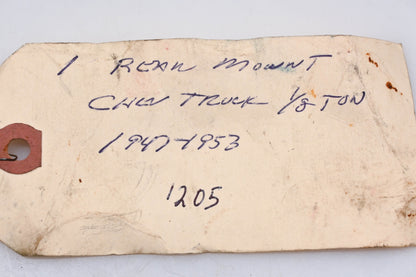 1 REAR MOUNT
CHEV TRUCK 1/2 TON
1947-1953
1205